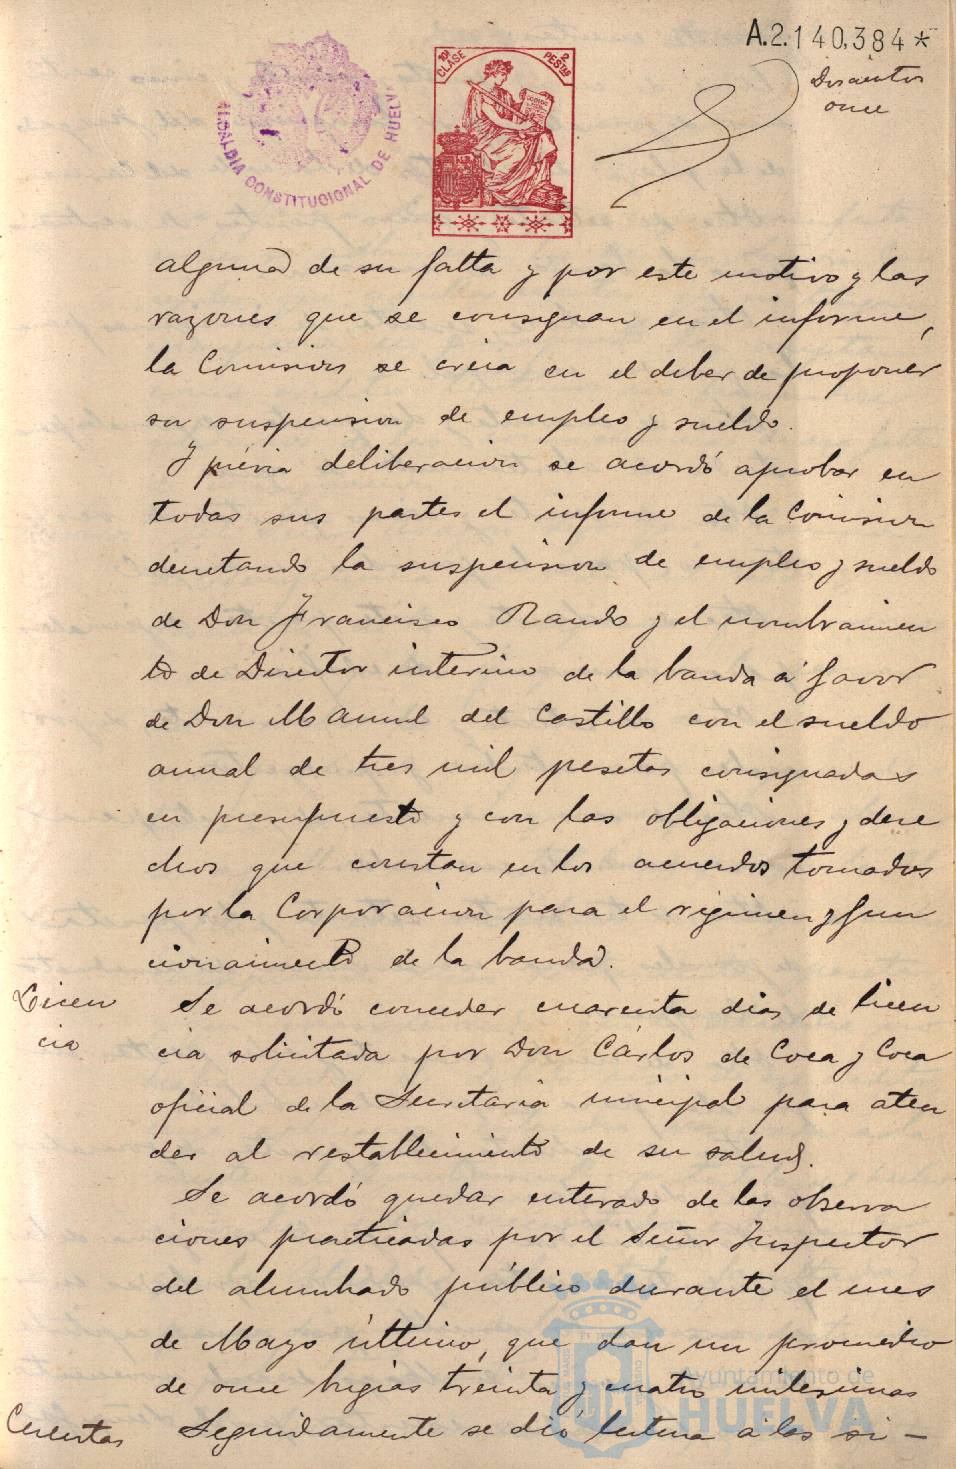 A.2.140,384*
Doscientos
once
10ª CLASE
2 PESTAS
ALCALDIA CONSTITUCIONAL DE HUELVA
alguna de su falta y por este motivo y las
razones que se consignan en el informe,
la Comision se creia en el deber de proponer
su suspension de empleo y sueldo.
Y prévia deliberacion se acordó aprobar en
todas sus partes el informe de la Comision
decretando la suspension de empleo y sueldo
de Don Francisco Rando y el nombramien
to de Director interino de la banda á favor
de Don Manuel del Castillo con el sueldo
anual de tres mil pesetas consignadas
en presupuesto y con las obligaciones y dere
chos que constan en los acuerdos tomados
por la Corporacion para el régimen y fun
cionamiento de la banda.
Licen
cia
Se acordó conceder cuarenta dias de licen
cia solicitada por Don Cárlos de Coca y Coca
oficial de la Secretaria municipal para aten
der al restablecimiento de su salud.
Se acordó quedar enterado de las observa
ciones practicadas por el Señor Inspector
del alumbrado público durante el mes
de Mayo último, que dan un promedio
de once bugias treinta y cuatro milesimas
Cuentas
Seguidamente se dió lectura á las si-
Ayuntamiento de
HUELVA